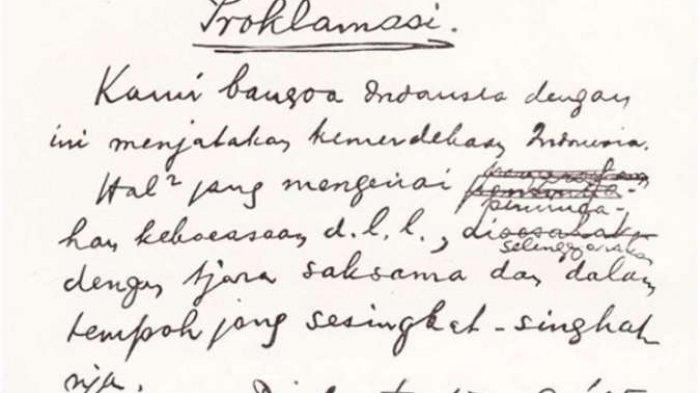 Proklamasi.
Kami bangsa Indonesia dengan
ini menjatakan kemerdekaan Indonesia.
Hal² jang mengenai
peminda-
han keboeasaan d.l.l.,
diselenggarakan
dengan tjara saksama dan dalam
tempoh jang sesingkat-singkat
nja.